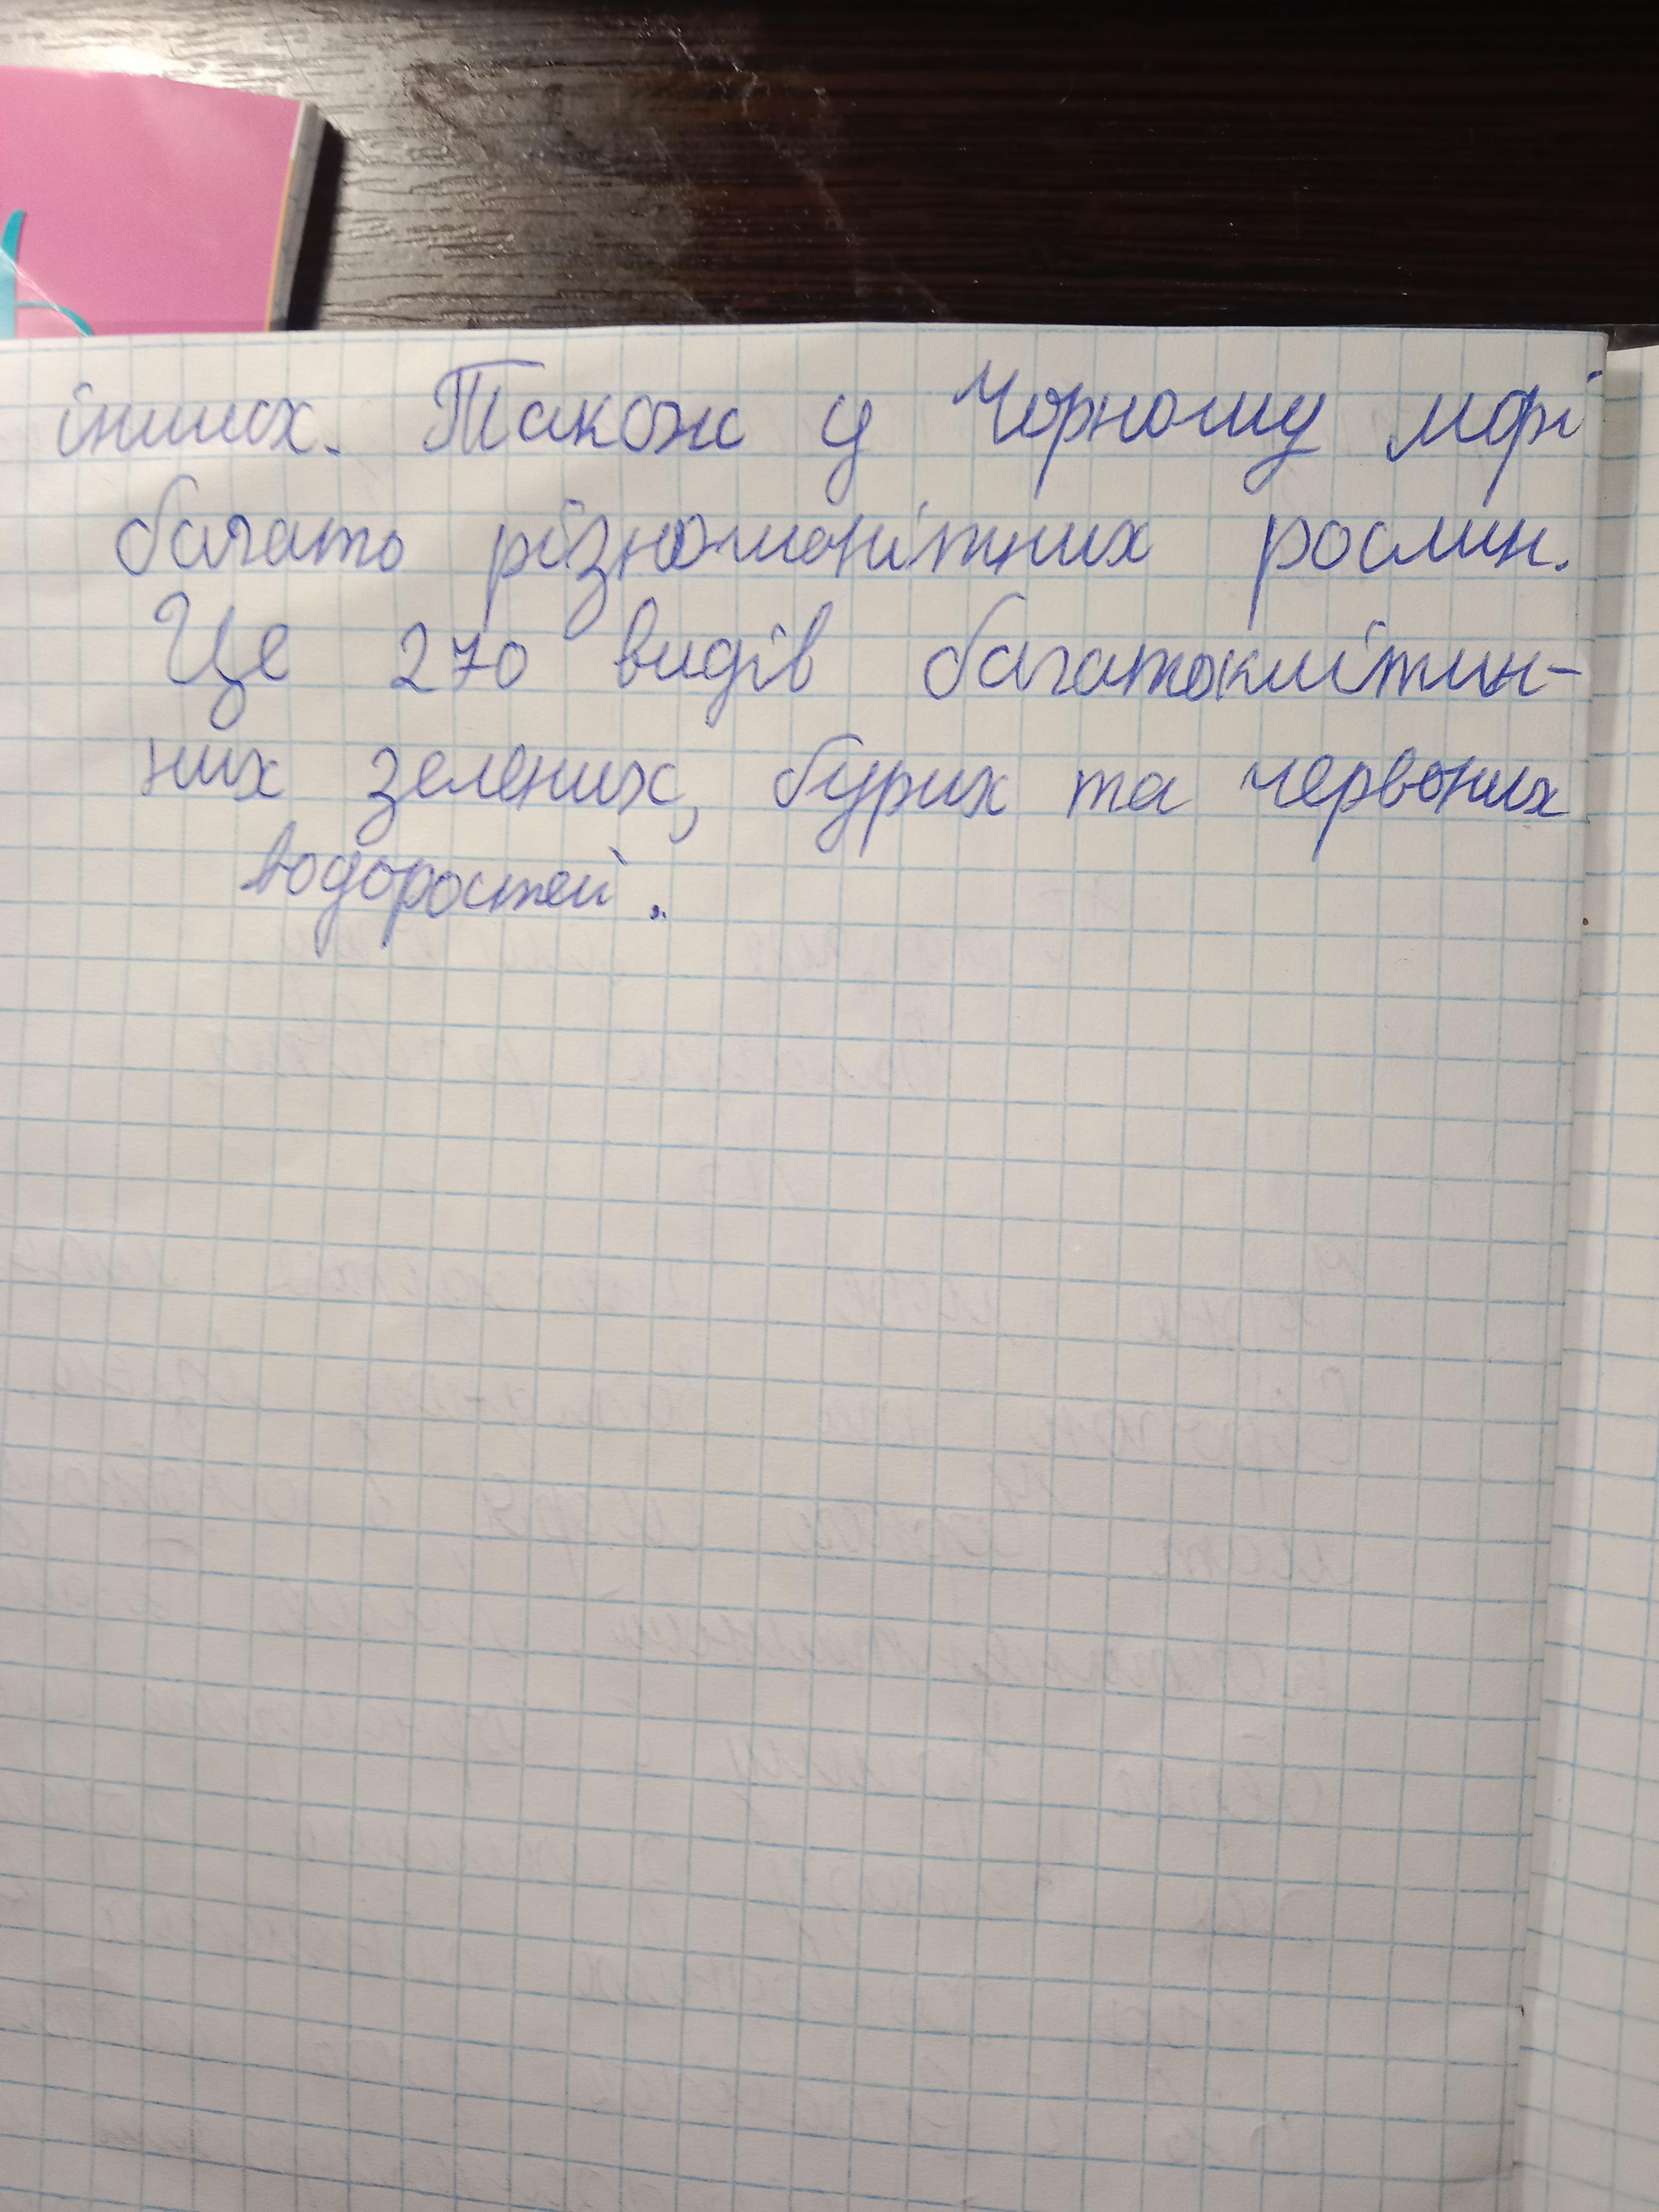 інших. Також у Чорному морі
багато різноманітних рослин.
Це 270 видів багатоклітин-
них зелених, бурих та червоних
водоростей.